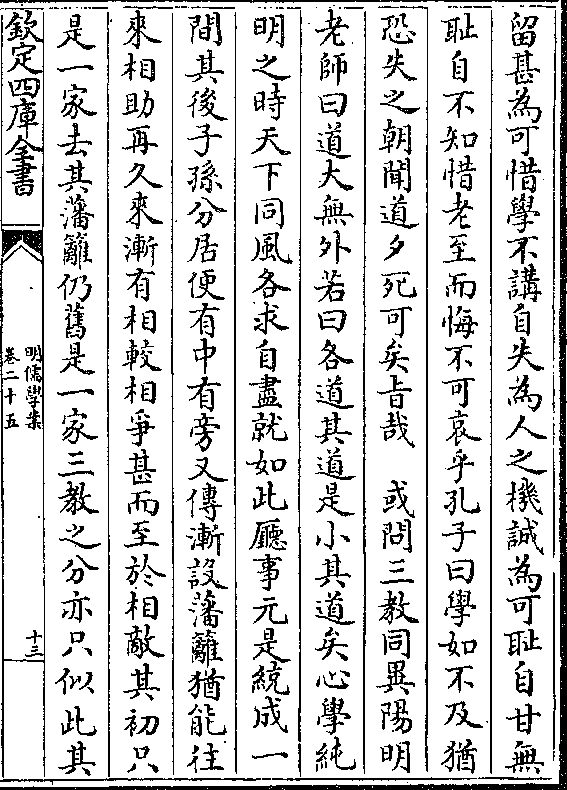 留甚為可惜學不講自失為人之機誠為可耻自甘無
耻自不知惜老至而悔不可哀乎孔子曰學如不及猶
恐失之朝聞道夕死可矣旨哉　或問三教同異陽明
老師曰道大無外若曰各道其道是小其道矣心學純
明之時天下同風各求自盡就如此廳事元是統成一
間其後子孫分居便有中有旁又傳漸設藩籬猶能往
來相助再久來漸有相較相爭甚而至於相敵其初只
是一家去其藩籬仍舊是一家三教之分亦只似此其
欽定四庫全書
明儒學案
卷二十五
十三